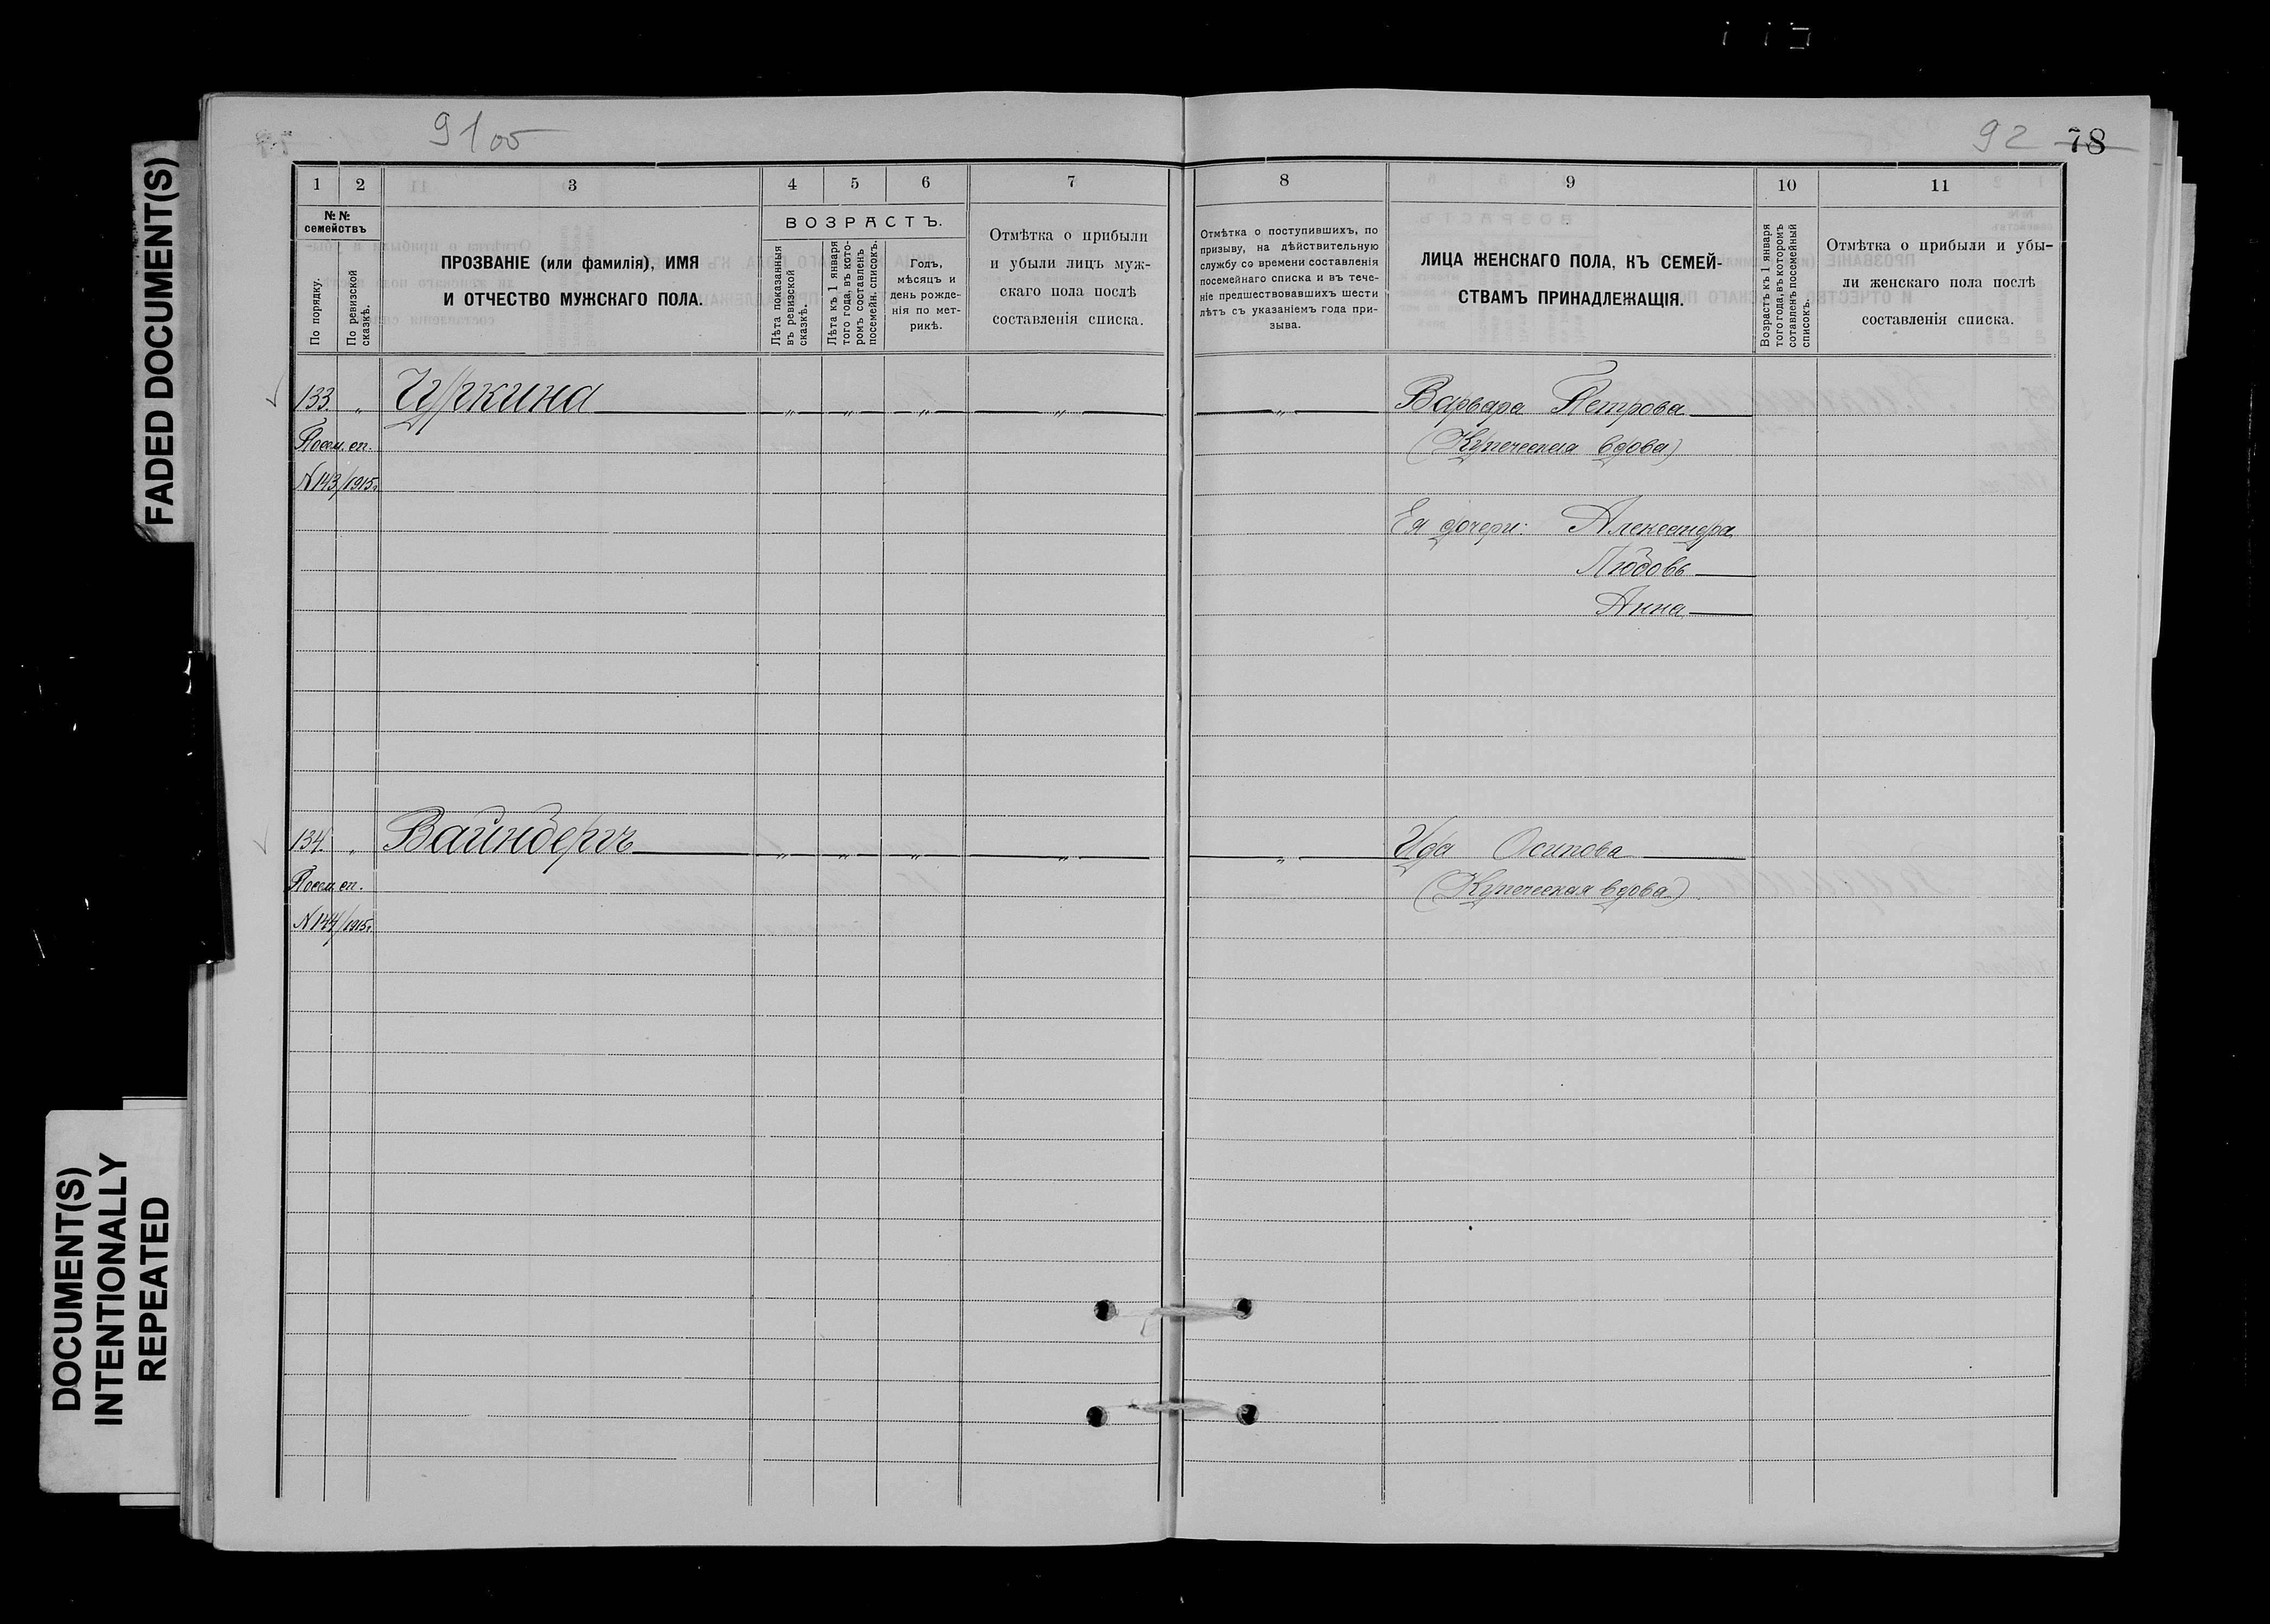 FADED DOCUMENT(S)
DOCUMENT(S)
INTENTIONALLY
REPEATED
91об
92 78
1 2 3 4 5 6 7
№№ семействъ
По порядку.
По ревизской сказкѣ.
ПРОЗВАНІЕ (или фамилія), ИМЯ
И ОТЧЕСТВО МУЖСКАГО ПОЛА.
ВОЗРАСТЪ.
Лѣта показанныя въ ревизской сказкѣ.
Лѣта къ 1 января того года, въ которомъ составленъ посемейн. списокъ.
Годъ,
мѣсяцъ и
день рожде-
нія по мет-
рикѣ.
Отмѣтка о прибыли
и убыли лицъ муж-
скаго пола послѣ
составленія списка.
133. „
Посем. сп.
N 143/1915г.
134. „ Вайнбергъ „ „ „ „
Посем. сп.
N 144/1915г.
8 9 10 11
Отмѣтка о поступившихъ, по
призыву, на дѣйствительную
службу со времени составленія
посемейнаго списка и въ тече-
ніе предшествовавшихъ шести
лѣтъ съ указаніемъ года при-
зыва.
ЛИЦА ЖЕНСКАГО ПОЛА, КЪ СЕМЕЙ-
СТВАМЪ ПРИНАДЛЕЖАЩІЯ.
Возрастъ къ 1 января
того года, въ которомъ
составленъ посемейный
списокъ.
Отмѣтка о прибыли и убы-
ли женскаго пола послѣ
составленія списка.
„ Варвара Петрова
(Купеческая вдова)
Ея дочери: Александра
Любовь
Анна
„ Ида Осипова
(Купеческая вдова)